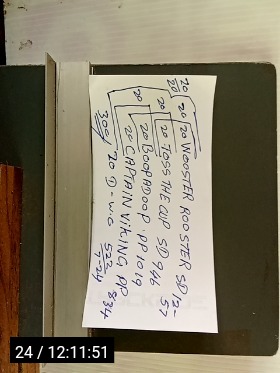 20
20 20 20 WOOSTER ROOSTER SD/2-57
20 20 TOSS THE CUP SD 946
20 20 BOOPADOOP. PP 1019
20 CAPTAIN VIKING PP 834
300 20 D-W.C 522
7-24
24 / 12:11:51